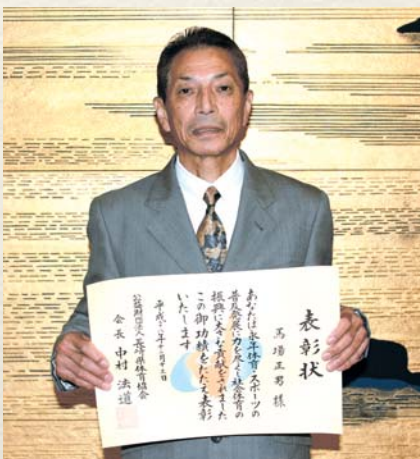 表彰状
馬場正男 様
あなたは永年体育・スポーツの
普及発展に力を尽くし社会体育の
振興に大きな貢献をされました
この御功績をたたえ表彰
いたします
平成二十八年十二月十三日
公益財団法人長崎県体育協会
会長 中村 法道